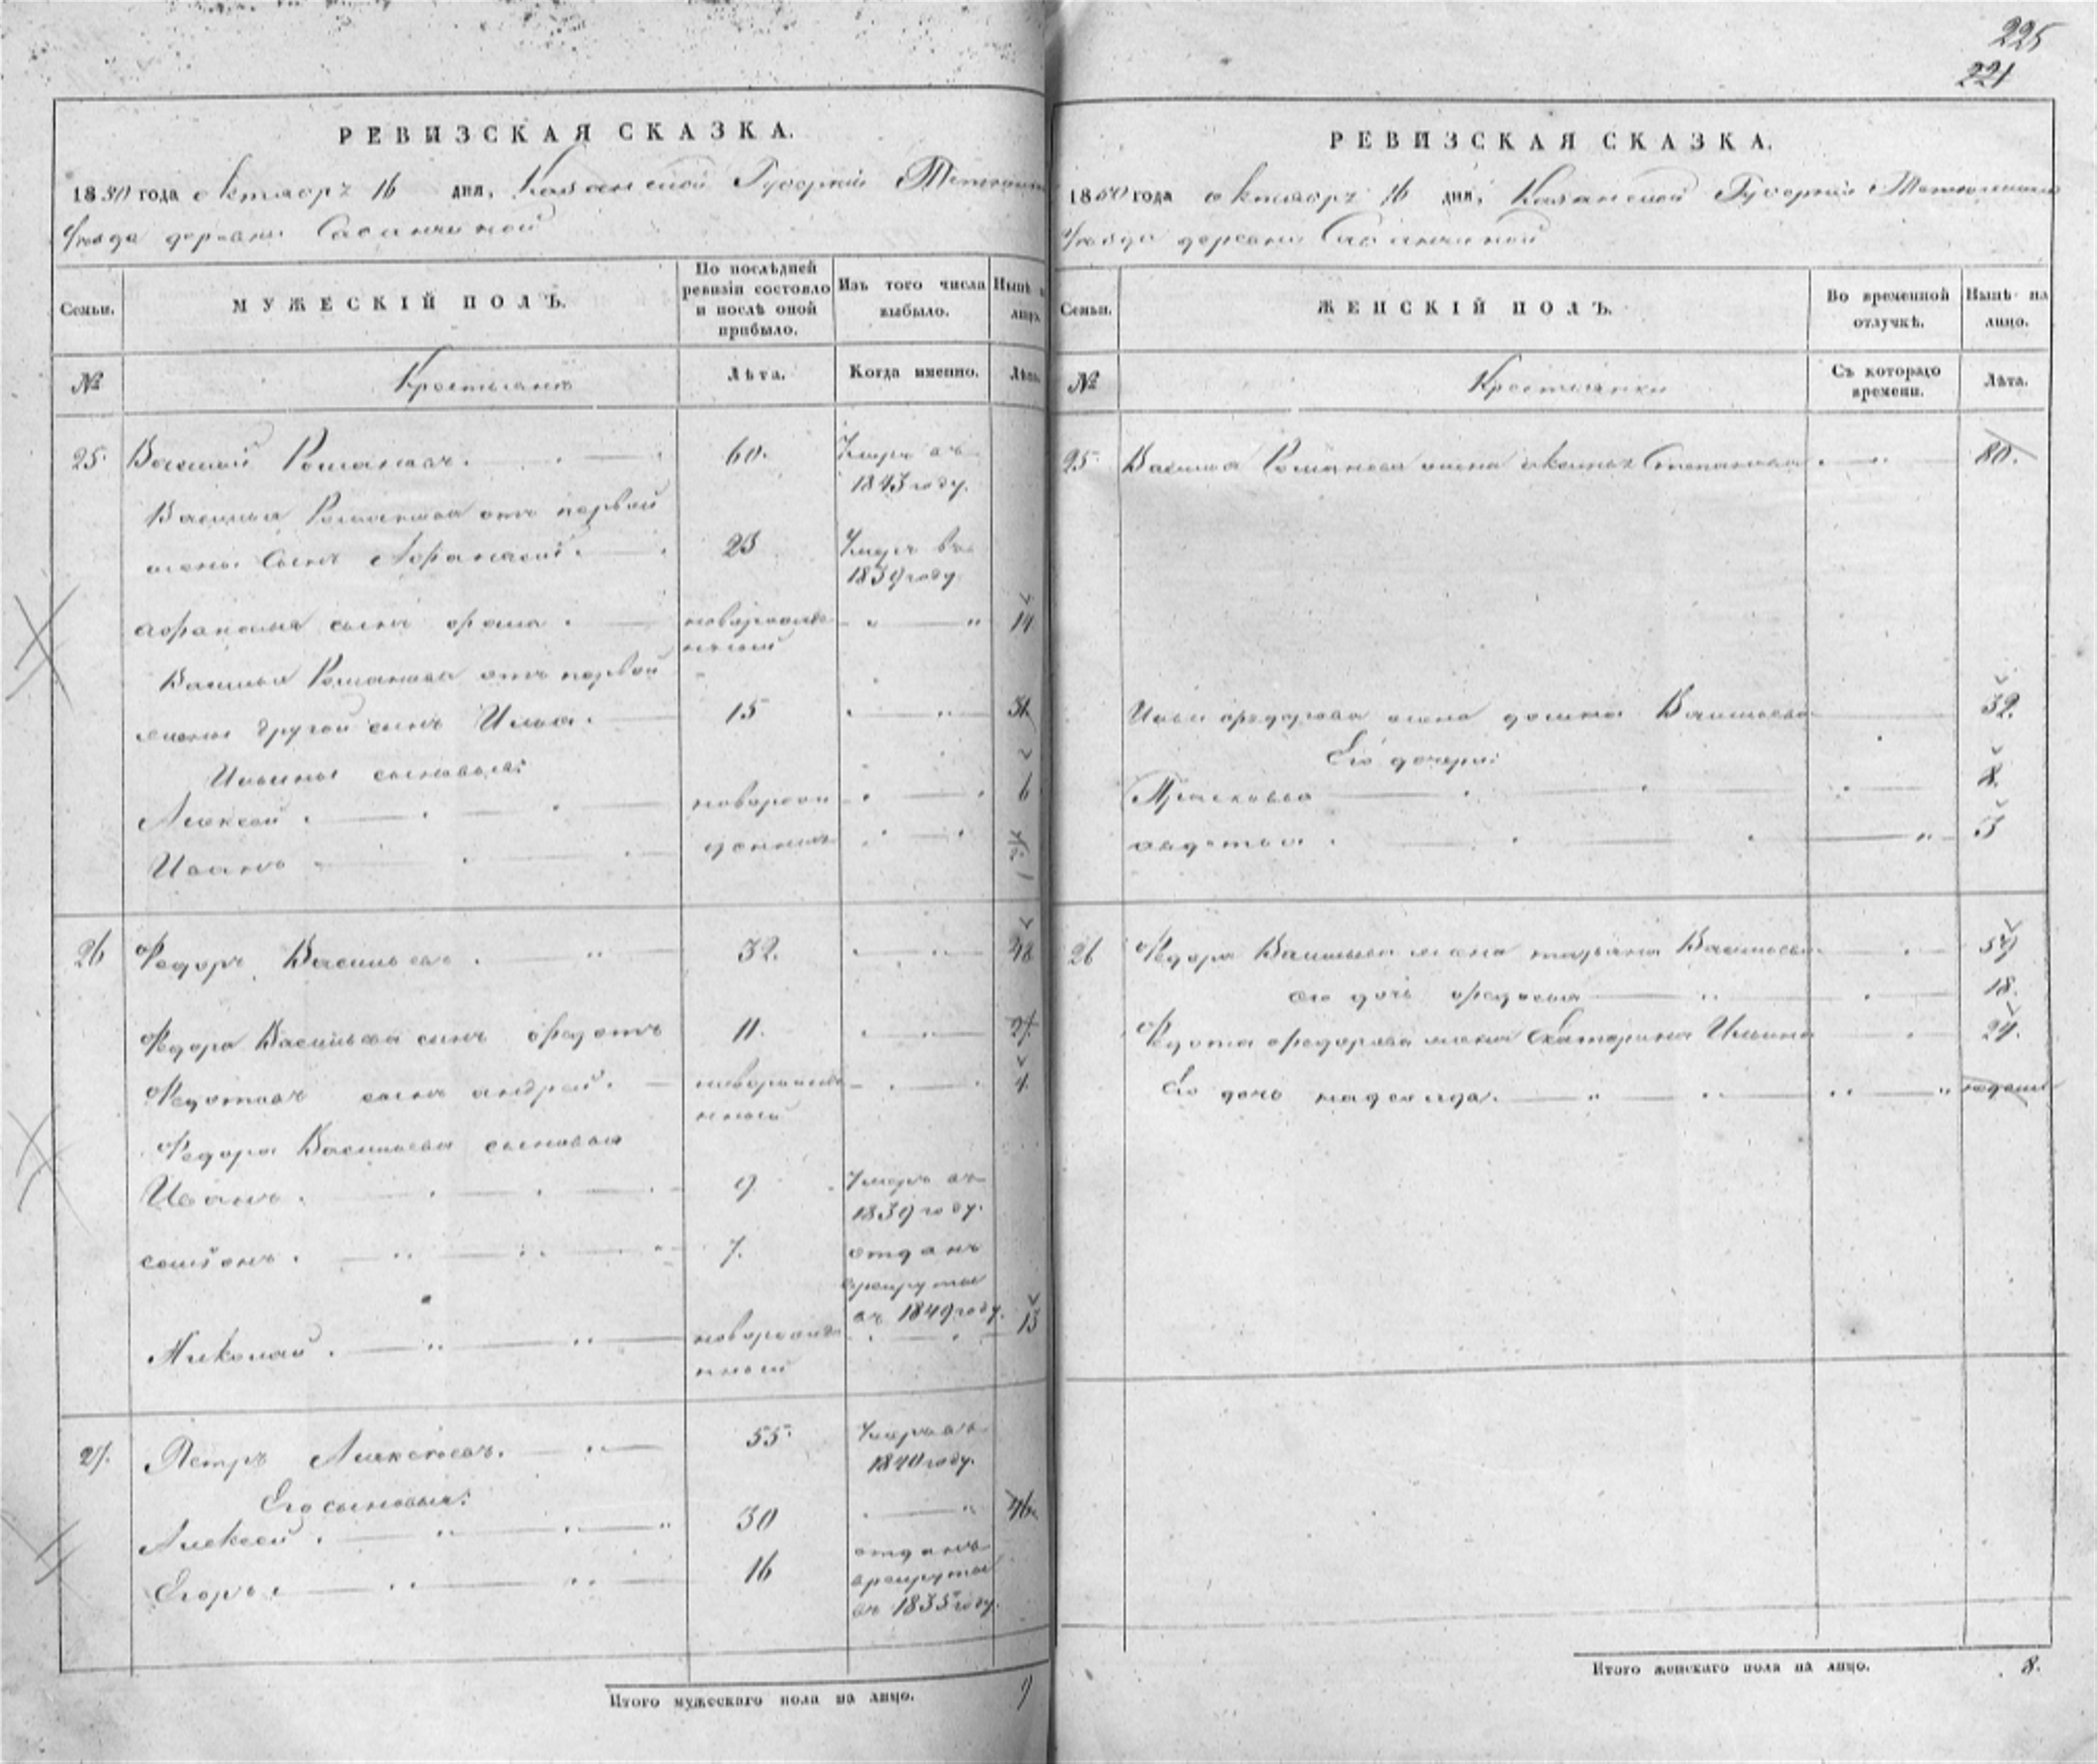 225
221
РЕВИЗСКАЯ СКАЗКА.
1850 года октября 16 дня, Казанской Губернии
Уезда деревни
Семьи.
МУЖЕСКІЙ ПОЛЪ.
По послѣдней
ревизіи состояло
и послѣ оной
прибыло.
Изъ того числа
выбыло.
Нынѣ
лицо.
№
Крестьяне
Лѣта.
Когда именно.
Лѣта.
25 Василий Романовъ. 60. Умеръ въ
1843 году.
Василья Романова отъ первой
жены сынъ Афанасий. 23 Умеръ въ
1839 году
Афанасья сынъ фома новорожде
нный 14
Василья Романова отъ первой
жены другой сынъ Илья. 15
Ильины сыновья:
Алексей новорож 6
Иванъ денные
26 Федоръ Васильевъ 32. 48
Федора Васильева сынъ федотъ 11. 27
Федотовъ сынъ андрей. новорожде
нный 4
Федора Васильева сыновья
Иванъ. 9 Умеръ въ
1839 году.
семёнъ. 7. отданъ
в рекруты
въ 1849 году.
Николай. новорожде
нный 13
27. Петръ Алексеевъ. 55. Умеръ въ
1840 году.
Его сыновья:
Алексей 30 46.
Егоръ 16 отданъ
в рекруты
въ 1835 году.
Итого мужескаго пола на лицо. 9
РЕВИЗСКАЯ СКАЗКА.
1850 года октября 16 дня, Казанской Губернии
Уезда деревни
Семьи.
ЖЕНСКІЙ ПОЛЪ.
Во временной
отлучкѣ.
Нынѣ на
лицо.
№
Крестьянки
Съ котораго
времени.
Лѣта.
25 Василья Романова жена Степанова 80.
Ильи федорова жена домна Васильева 32.
Его дочери:
Прасковья 8.
авдотья 3
26 Федора Васильева жена татьяна Васильева 57
его дочь федосья 18.
Федота федорова жена Екатерина Ильина 24.
Его дочь надежда.
Итого женскаго пола на лицо. 8.